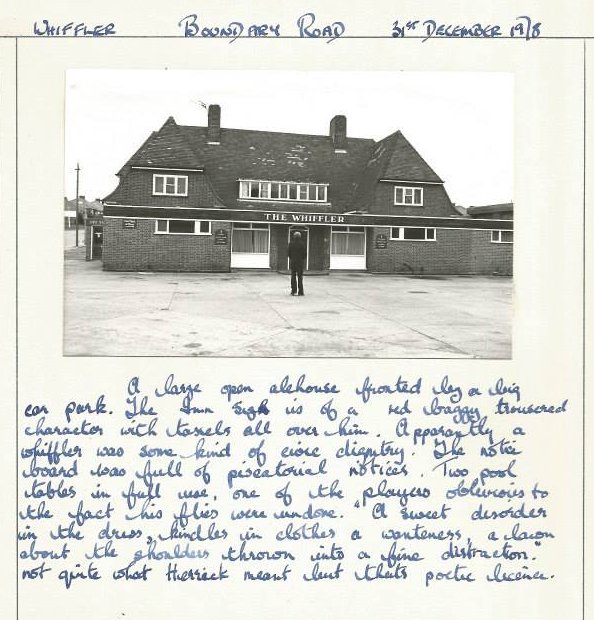 WHIFFLER BOUNDARY ROAD 31ST DECEMBER 1978
THE WHIFFLER
A large open alehouse fronted by a big
car park. The Inn Sign is of a red baggy trousered
character with tassels all over him. Apparently a
whiffler was some kind of civic dignitry. The notice
board was full of piscatorial notices. Two pool
tables in full use, one of the players oblivious to
the fact his flies were undone. "A sweet disorder
in the dress, kindles in clothes a wanteness, a lawn
about the shoulders thrown into a fine distraction."
not quite what Herrick meant but thats poetic licence.